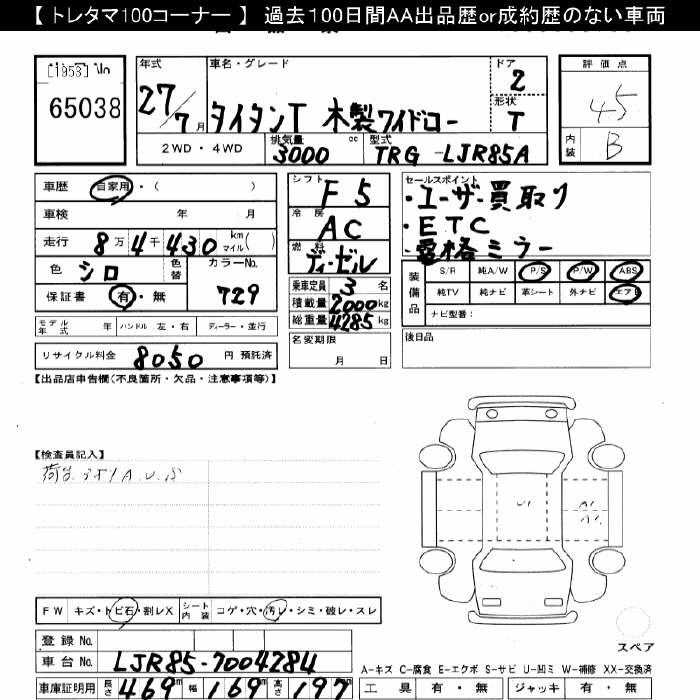 【 トレタマ100コーナー 】 過去100日間AA出品歴or成約歴のない車両
65038
年式 27/7月
車名・グレード
タイタンT 木製ワイドロー
ドア 2
形状 T
評価点
45
内装 B
2WD・4WD
排気量 3000 cc
型式 TRG-LJR85A
車歴 自家用・( )
車検 年 月
走行 8万4千430 km マイル( )
色 シロ 色替
カラーNo. 729
保証書 有・無
モデル年式 年 ハンドル 左・右 ディーラー・並行
リサイクル料金 8050 円 預託済
シフト F5
冷房 AC
燃料 ディーゼル
乗車定員 3 名
積載量 2000 kg
総重量 4285 kg
名変期限
月 日
セールスポイント
・ユーザー買取り
・ETC
・電格ミラー
装備品
S/R 純A/W P/S P/W ABS
純TV 純ナビ 革シート 外ナビ エアB
ナビ型番:
後日品
【出品店申告欄(不良箇所・欠品・注意事項等)】
【検査員記入】
FW キズ・トビ石・割レX
シート内装 コゲ・穴・汚レ・シミ・破レ・スレ
登録 No.
車台 No. LJR85-7004284
車庫証明用 長さ 469 幅 169 高さ 197
スペア
A-キズ C-腐食 E-エクボ S-サビ U-凹ミ W-補修 XX-交換済
工具 有・無 ジャッキ 有・無